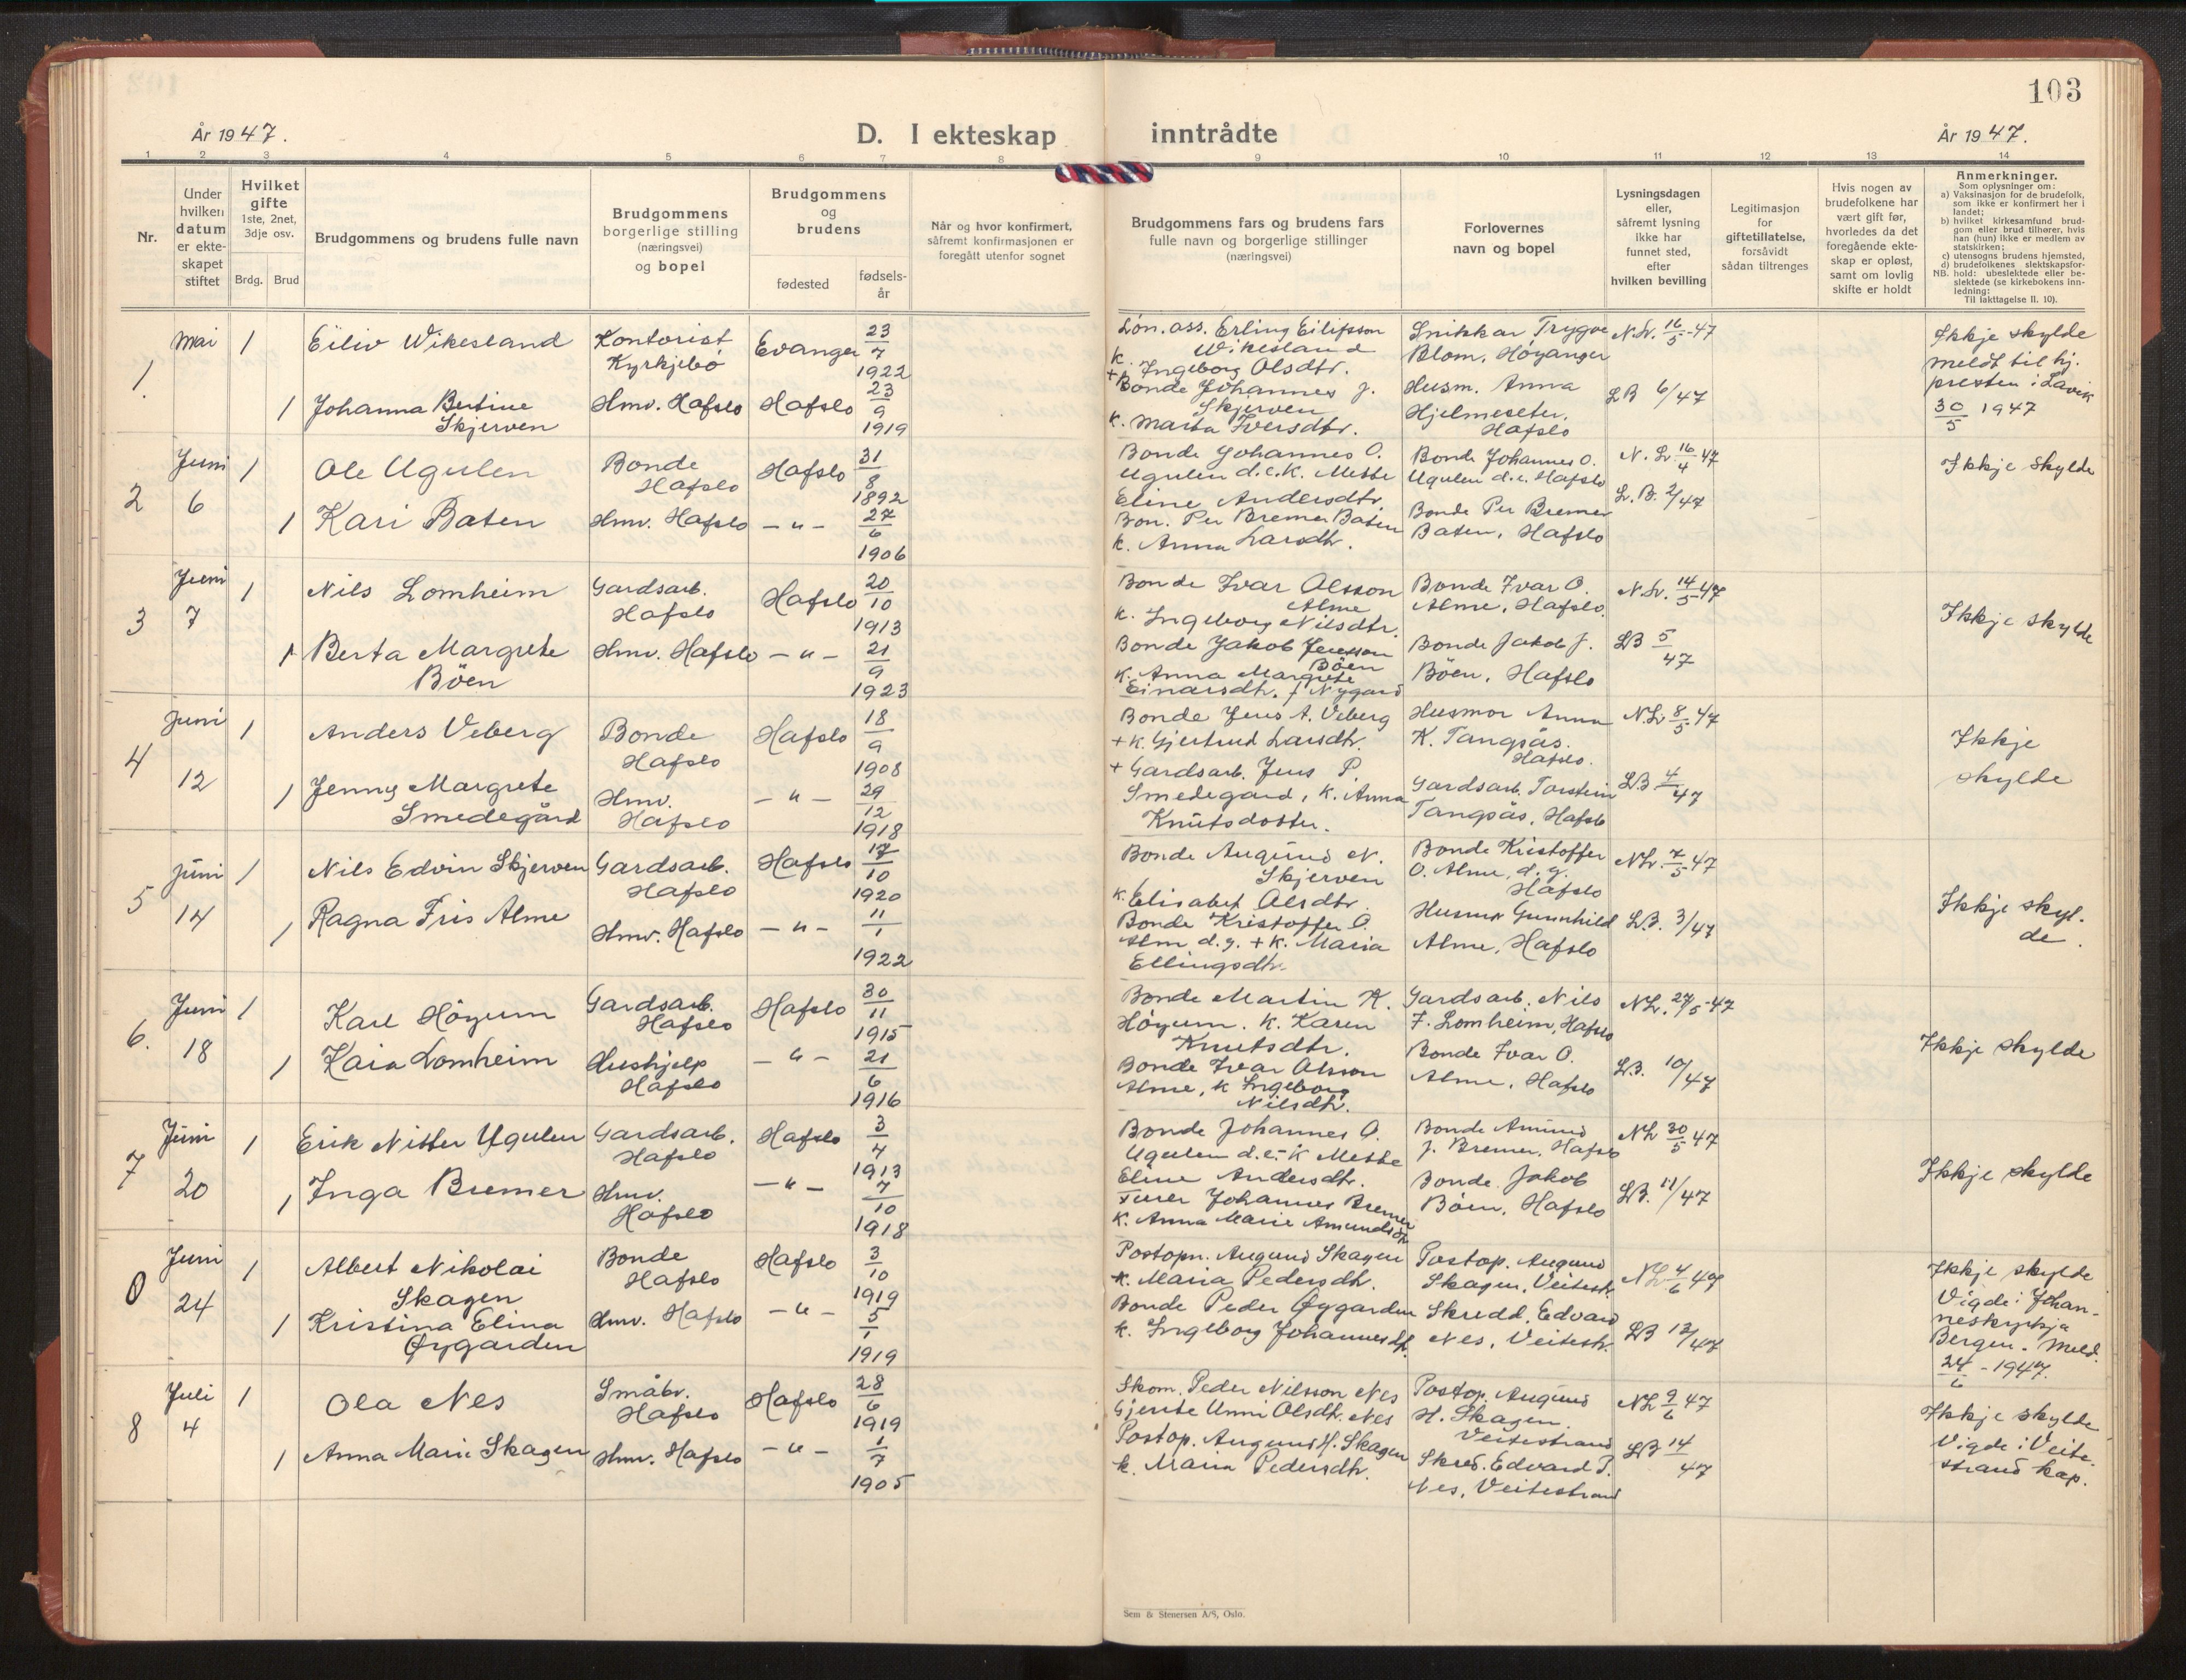 103
År 1947.
D. I ekteskap inntrådte
År 1947.
1 2 3 4 5 6 7 8 9 10 11 12 13 14
Nr.
Under
hvilken
datum
er ekte-
skapet
stiftet
Hvilket
gifte
1ste, 2net,
3dje osv.
Brdg. Brud
Brudgommens og brudens fulle navn
Brudgommens
borgerlige stilling
(næringsvei)
og bopel
Brudgommens
og
brudens
fødested
fødsels-
år
Når og hvor konfirmert,
såfremt konfirmasjonen er
foregått utenfor sognet
Brudgommens fars og brudens fars
fulle navn og borgerlige stillinger
(næringsvei)
Forlovernes
navn og bopel
Lysningsdagen
eller,
såfremt lysning
ikke har
funnet sted,
efter
hvilken bevilling
Legitimasjon
for
giftetillatelse,
forsåvidt
sådan tiltrenges
Hvis nogen av
brudefolkene har
vært gift før,
hvorledes da det
foregående ekte-
skap er opløst,
samt om lovlig
skifte er holdt
Anmerkninger.
Som oplysninger om:
a) Vaksinasjon for de brudefolk,
som ikke er konfirmert her i
landet;
b) hvilket kirkesamfund brud-
gom eller brud tilhører, hvis
han (hun) ikke er medlem av
statskirken;
c) utensogns brudens hjemsted,
d) brudefolkenes slektskapsfor-
NB. hold: ubeslektede eller be-
slektede (se kirkebokens inn-
ledning:
Til iakttagelse II. 10).
1.
Mai
1
Eiliv Wikesland
Kontorist
Kyrkjebö
Evanger
23/7
1922
Lön. ass. Erling Eilifsson
Wikesland
k. Ingeborg Olsdtr.
Snikkar Trygve
Blom, Höyanger
N.L. 16/5-47
Ikkje skylde
meldt til hj.
presten i Lavik
30/5 1947
1
Johanna Bertine
Skjerven
Hmv. Hafslo
Hafslo
23/9
1919
+ Bonde Johannes J.
Skjerven
k. Marta Iversdtr.
Husm. Anna
Hjelmeseter,
Hafslo
LB 6/47
2
Juni
6
1
Ole Ugulen
Bonde
Hafslo
Hafslo
31/8
1892
Bonde Johannes O.
Ugulen d.e. K. Mette
Eline Andersdtr.
Bonde Johannes O.
Ugulen d.e. Hafslo
N. L. 16/4 47
Ikkje skylde
1
Kari Baten
Hmv. Hafslo
- " -
27/6
1906
Bon. Per Bremer Baten
k. Anna Larsdtr.
Bonde Per Bremer
Baten, Hafslo
L. B. 2/47
3
Juni
7
1
Nils Lomheim
Gardsarb.
Hafslo
Hafslo
20/10
1913
Bonde Ivar Olsson
Alme
k. Ingeborg Nilsdtr.
Bonde Ivar O.
Alme, Hafslo
N.L. 14/5 47
Ikkje skylde
1
Berta Margrete
Böen
Hmv. Hafslo
- " -
21/9
1923
Bonde Jakob Jensson
Böen
k. Anna Margrete
Einarsdtr. f Nygard
Bonde Jakob J.
Böen, Hafslo
LB 5/47
4
Juni
12
1
Anders Veberg
Bonde
Hafslo
Hafslo
18/9
1908
Bonde Jens A. Veberg
+ k. Gjertrud Larsdtr.
Husmor Anna
K. Tangsås.
Hafslo.
N.L 8/5 47
Ikkje
skylde
1
Jenny Margrete
Smedegård
Hmv.
Hafslo
- " -
29/12
1918
+ Gardsarb. Jens P.
Smedegard, k. Anna
Knutsdotter.
Gardsarb. Torstein
Tangsås, Hafslo
LB 4/47
5
Juni
14
1
Nils Edvin Skjerven
Gardsarb.
Hafslo
Hafslo
17/10
1920
Bonde Augund N.
Skjerven
k. Elisabet Olsdtr.
Bonde Kristoffer
O. Alme, d.y.
Hafslo
NL. 7/5 47
Ikkje skyl-
de.
1
Ragna Fris Alme
Hmv. Hafslo
- " -
11/1
1922
Bonde Kristoffer O.
Alm d.y. + k. Maria
Ellingsdtr.
Husmor Gunnhild
Alme, Hafslo
L.B. 3/47
6.
Juni
18
1
Karl Höyum
Gardsarb.
Hafslo
Hafslo
30/11
1915
Bonde Martin K.
Höyum. k. Karen
Knutsdtr.
Gardsarb. Nils
F. Lomheim, Hafslo
NL. 27/5-47
Ikkje skylde
1
Kaia Lomheim
Hushjelp
Hafslo
- " -
21/6
1916
Bonde Ivar Olsson
Alme, k Ingeborg
Nilsdtr.
Bonde Ivar O.
Alme, Hafslo
LB. 10/47
7
Juni
20
1
Erik Nitter Ugulen
Gardsarb.
Hafslo
Hafslo
3/4
1913
Bonde Johannes O.
Ugulen d.e. k Mette
Eline Andersdtr.
Bonde Amund
J. Bremer, Hafslo
NL 30/5 47
Ikkje skylde
1
Inga Bremer
Hmv.
Hafslo
- " -
7/10
1918
Johannes Bremer
k. Anna Marie Amundsdtr
Bonde Jakob
Böen, Hafslo
LB. 11/47
0
Juni
24
1
Albert Nikolai
Skagen
Bonde
Hafslo
Hafslo
3/10
1919
Postopn. Augund Skagen
k. Maria Pedersdtr.
Postop. Augund
Skagen, Veitestr.
NL 4/6 47
Ikkje skylde
Vigde i Johan-
neskyrkja
Bergen. Meld.
24/6 - 1947.
1
Kristina Elina
Øygarden
Hmv. Hafslo
- " -
5/1
1919
Bonde Peder Øygarden
k. Ingeborg Johannesdtr.
Skredd. Edvard
Nes, Veitestr.
LB 12/47
8
Juli
4
1
Ola Nes
Småbr.
Hafslo
Hafslo
28/6
1919
Skom. Peder Nilsson Nes
Gjerte Unni Olsdtr. Nes
Postop. Augund
H. Skagen.
Veitestrand
NL 9/6 47
Ikkje skylde
Vigde i Veite-
strand kap.
1
Anna Marie Skagen
Hmv. Hafslo
- " -
1/7
1905
Postop. Augund H. Skagen
k. Maria Pedersdtr.
Skred. Edvard P.
Nes, Veitestrand
LB 14/47
Sem & Stenersen A/S, Oslo.